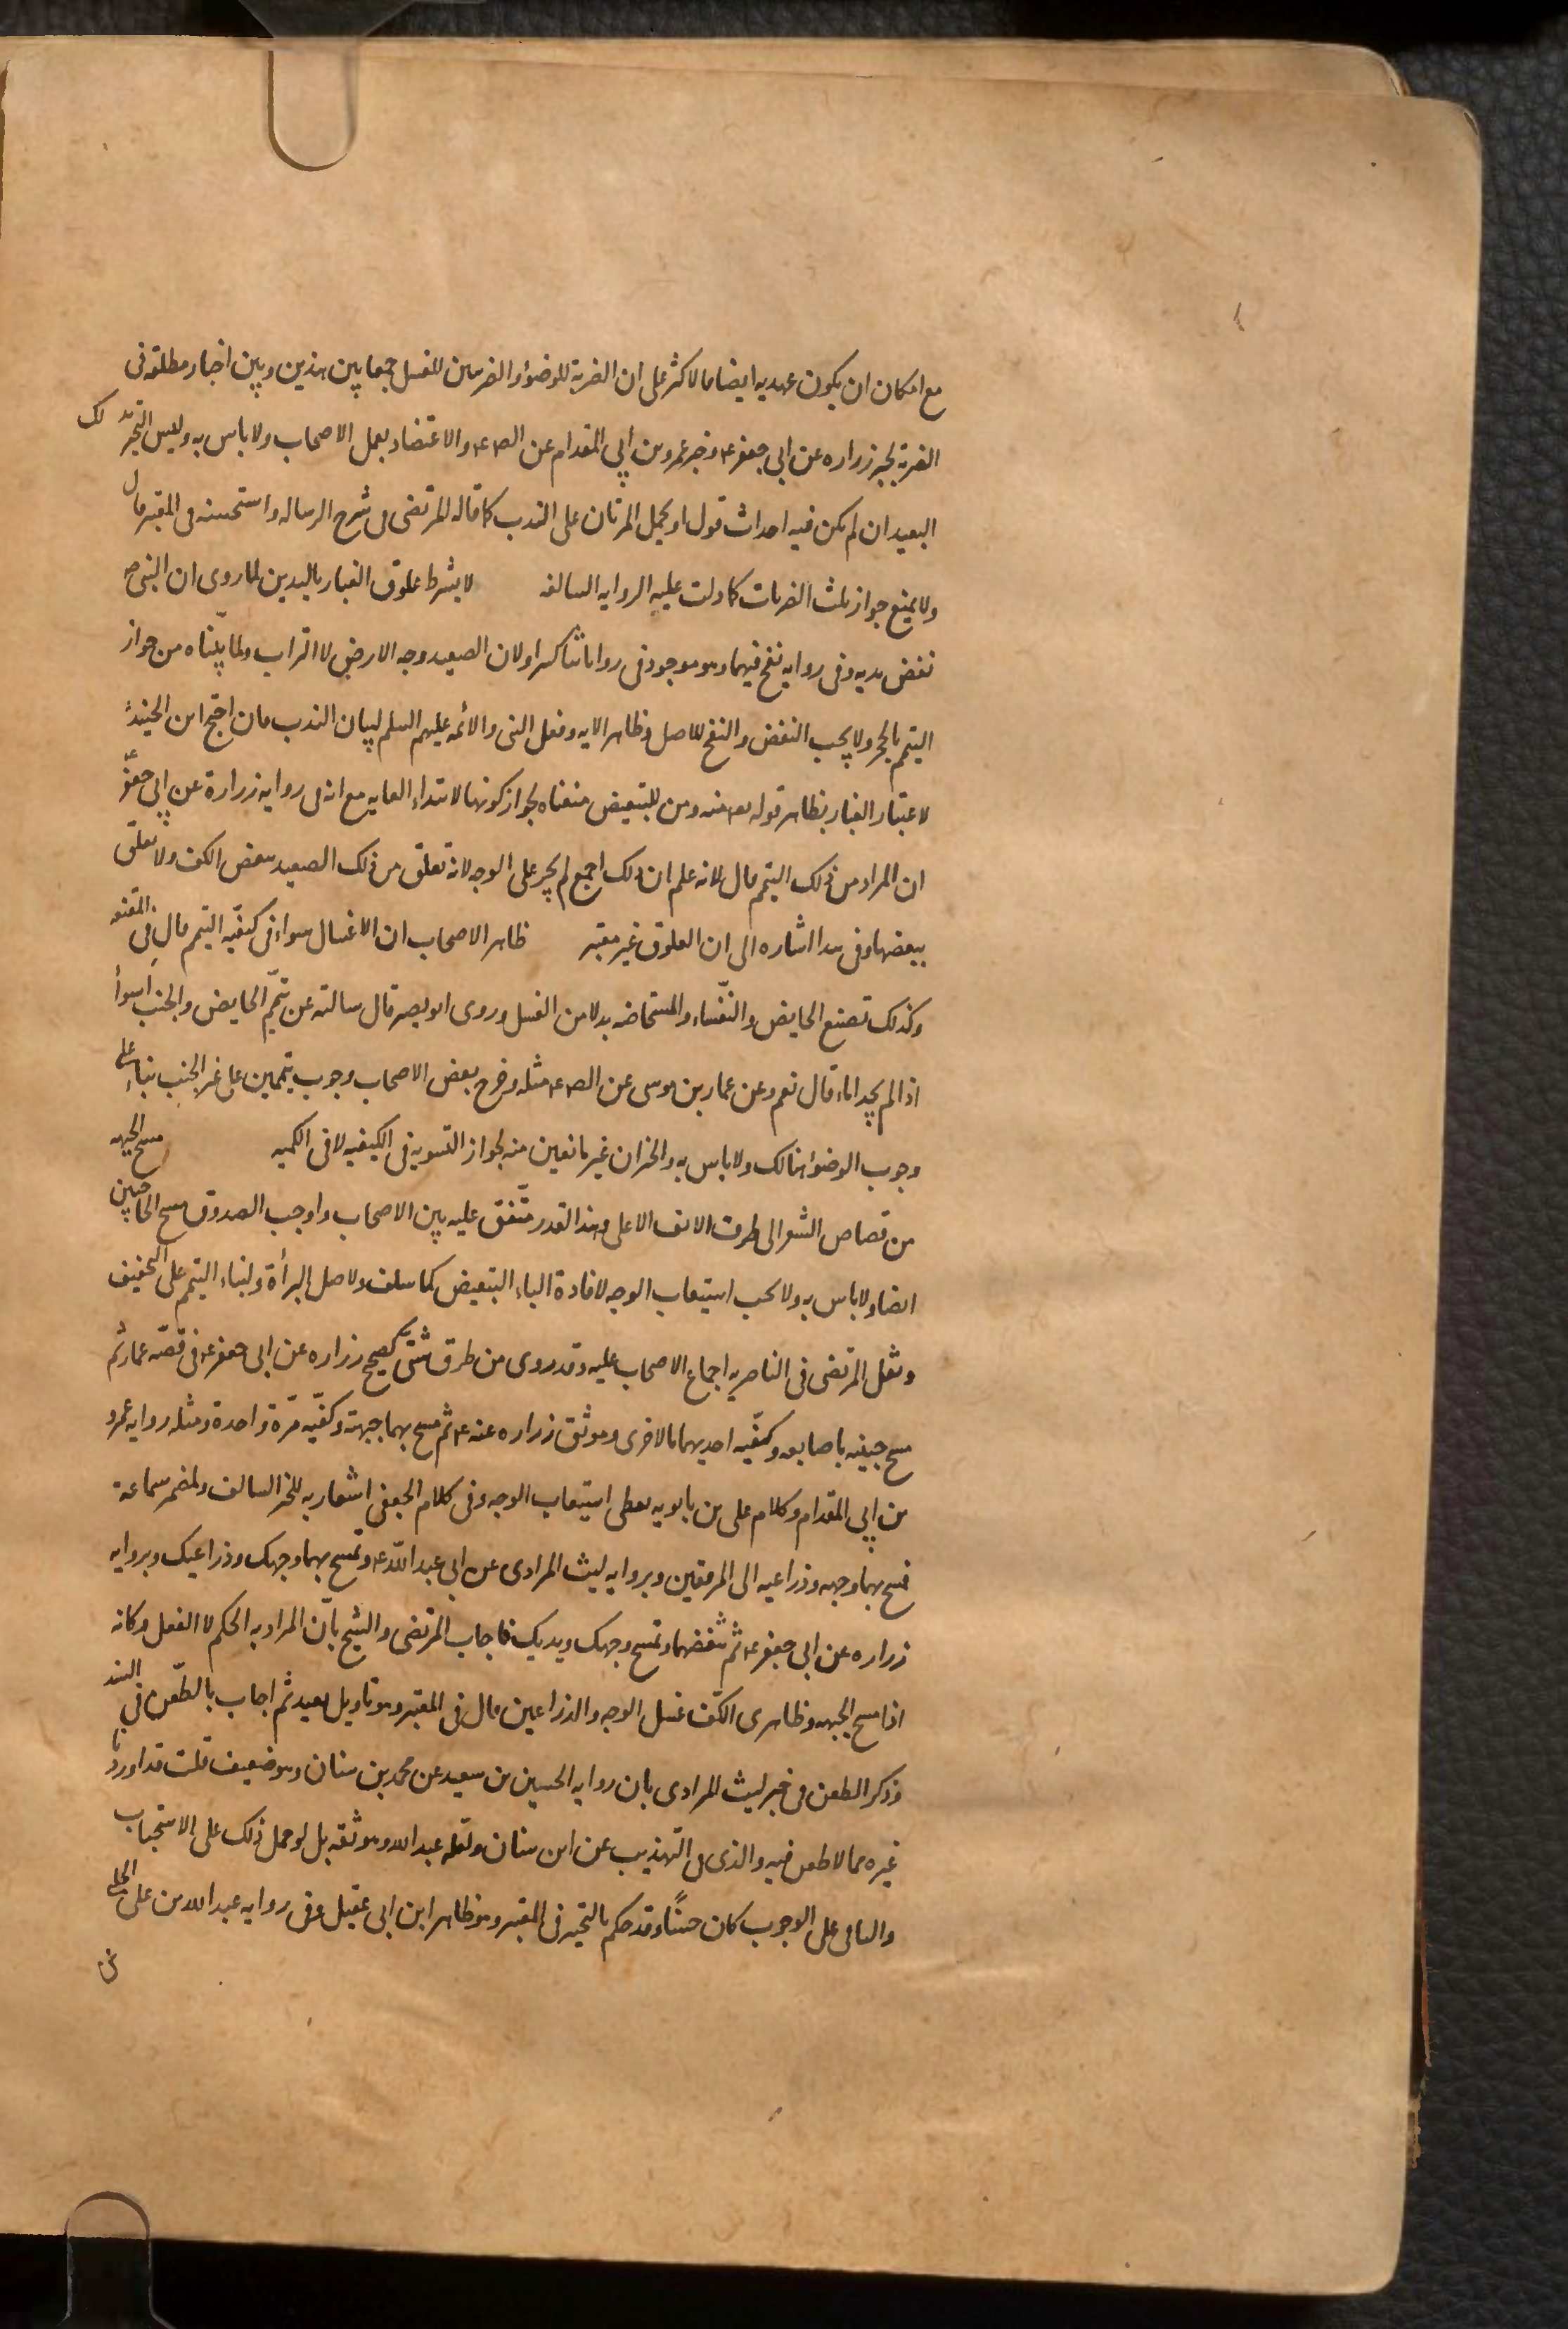 مع امكان ان يكون عهديه ايضا فالاكثر على ان الضربة للوضوء والضربتين للغسل جمعا بين هذين وبين اخبار مطلقه فى
الضربة لخبر زراره عن ابى جعفر ع وخبر عمرو بن ابى المقدام عن الص ع والاعتضاد بعمل الاصحاب ولا باس به وليس التخيير بذلك
البعيد ان لم يكن فيه احداث قول او يحمل المرتان على الندب كما قاله المرتضى فى شرح الرساله واستحسنه فى المعتبر قال
ولا يمنع جواز ثلث الضربات كما دلت عليه الروايه السالفه لا يشترط علوق الغبار باليدين لما روى ان النبى ص
نفض يديه وفى روايه نفخ فيهما وهو موجود فى رواياتنا كثيرا ولان الصعيد وجه الارض لا التراب ولما بيناه من جواز
التيمم بالحجر ولا يجب النفض والنفخ للاصل وظاهر الايه وفعل النبى والائمه عليهم السلم لبيان الندب فان احتج ابن الجنيد
لاعتبار الغبار بظاهر قوله تعه منه ومن للتبعيض منعناه لجواز كونها لابتداء الغايه مع انه فى روايه زرارة عن ابى جعفر ع
ان المراد من ذلك التيمم قال لانه علم ان ذلك اجمع لم يجر على الوجه لانه تعلق من ذلك الصعيد ببعض الكف ولا تعلق
ببعضها وفى هذا اشاره الى ان العلوق غير معتبر ظاهر الاصحاب ان الاغسال سواء فى كيفيه التيمم قال فى المقنعه
وكذلك تصنع الحايض والنفساء والمستحاضه بدلا من الغسل وروى ابو بصير قال سالته عن تيمم الحايض والجنب اسواء
اذا لم يجدا ماء قال نعم وعن عمار بن موسى عن الص ع مثله وخرج بعض الاصحاب وجوب تيممين على غير الجنب بناء على
وجوب الوضوء هنالك ولا باس به والخبران غير مانعين منه لجواز التسويه فى الكيفيه لا فى الكميه مسح الجبهه
من قصاص الشعر الى طرف الانف الاعلى وهذا القدر متفق عليه بين الاصحاب واوجب الصدوق مسح الحاجبين
ايضا ولا باس به ولا يجب استيعاب الوجه لافادة الباء التبعيض كما سلف ولاصل البرأة ولبناء التيمم على التخفيف
ونقل المرتضى فى الناصريه اجماع الاصحاب عليه وقد روى من طرق شتى كصحيح زراره عن ابى جعفر ع فى قصه عمار ثم
مسح جبينيه باصابعه وكفيه احديهما بالاخرى وموثق زراره عنه ع ثم مسح بهما جبهته وكفيه مرة واحدة ومثله روايه عمرو
بن ابى المقدام وكلام على بن بابويه يعطى استيعاب الوجه وفى كلام الجعفى اشعار به للخبر السالف ولمضمر سماعة
فمسح بهما وجهه وذراعيه الى المرفقين وبروايه ليث المرادى عن ابى عبد الله ع وتمسح بهما وجهك وذراعيك وبروايه
زراره عن ابى جعفر ع ثم تنفضهما وتمسح وجهك ويديك فاجاب المرتضى والشيخ بان المراد به الحكم لا الفعل وكانه
اذا مسح الجبهه وظاهرى الكف غسل الوجه والذراعين قال فى المعتبر وهو تاويل بعيد ثم اجاب بالطعن فى السند
وذكر الطعن فى خبر ليث المرادى بان روايه الحسين بن سعيد عن محمد بن سنان وهو ضعيف قلت قد اوردنا
غيره مما لا طعن فيه والذى فى التهذيب عن ابن سنان ولعله عبد الله وهو ثقه بل لو حمل ذلك على الاستحباب
والباقى على الوجوب كان حسنا وقد حكم بالتخيير فى المعتبر وهو ظاهر ابن ابى عقيل وفى روايه عبد الله بن على الحلبى